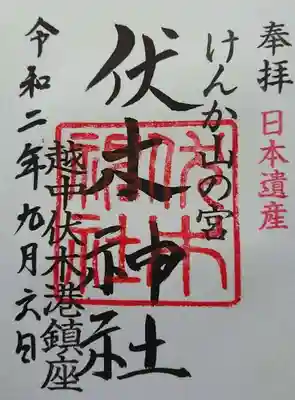 奉拝
日本遺産
けんか山の宮
伏木神社
伏木神社
越中伏木港鎮座
令和二年九月六日